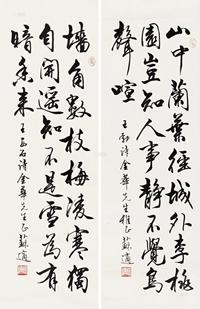 山中蘭葉徑城外李桃
園豈知人事靜不覺鳥
聲喧
王勃詩金華先生雅正蘇適
墻角數枝梅凌寒獨
自開遙知不是雪為有
暗香來
王安石詩金華先生正蘇適